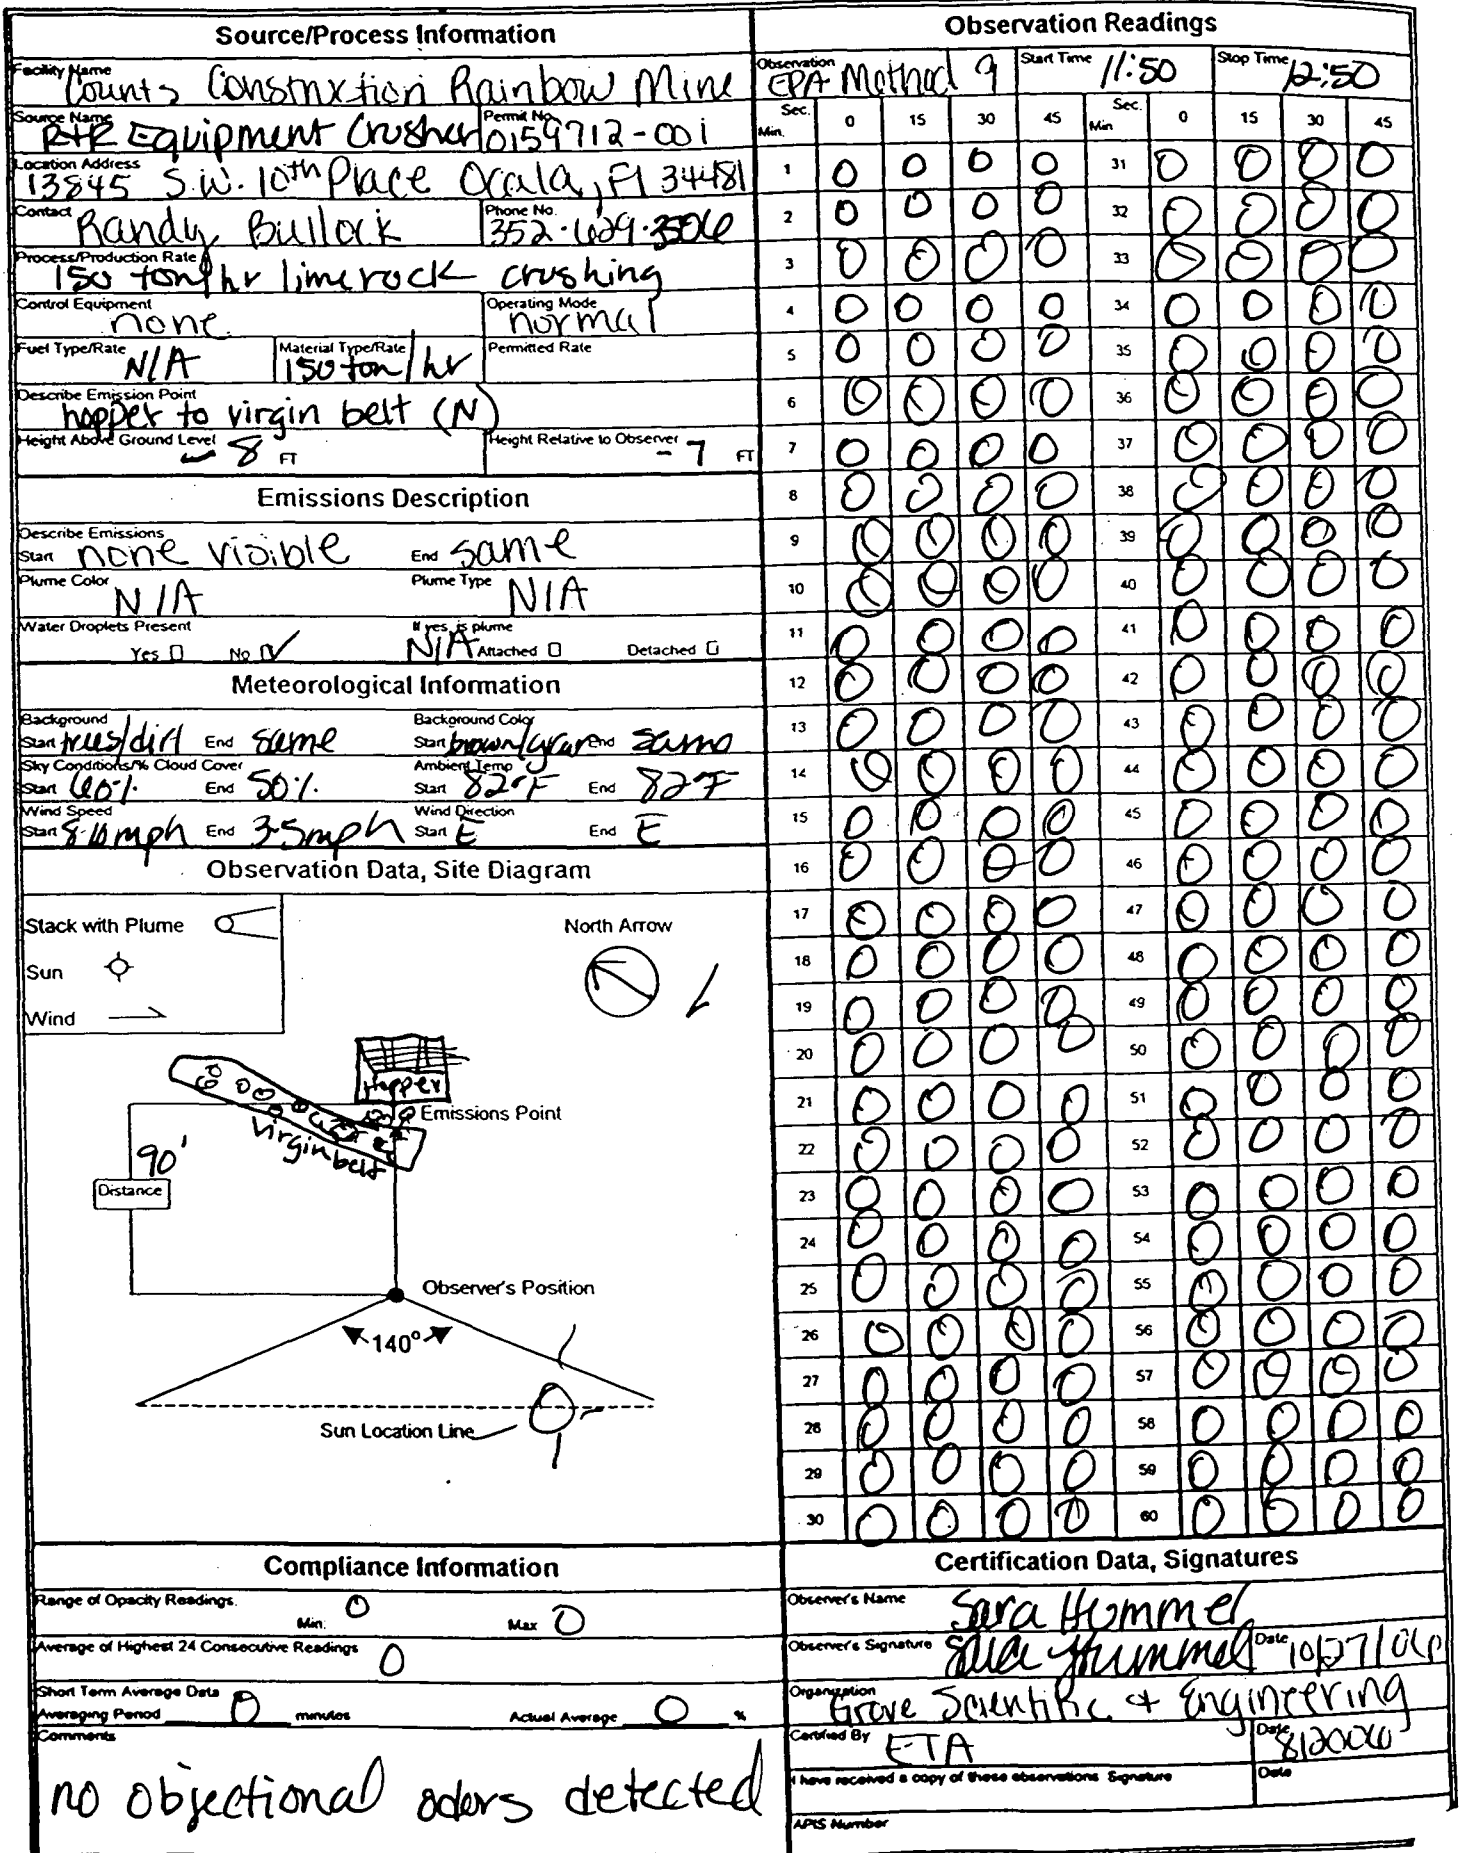 Source/Process Information
Facility Name
Counts Construction Rainbow Mine
Source Name
R+R Equipment Crusher
Permit No.
0159712-001
Location Address
13845 S.W. 10th Place Ocala, Fl 34481
Contact
Randy Bullock
Phone No.
352.629.3506
Process/Production Rate
150 ton/hr limerock crushing
Control Equipment
none
Operating Mode
normal
Fuel Type/Rate
N/A
Material Type/Rate
150 ton/hr
Permitted Rate
Describe Emission Point
hopper to virgin belt (N)
Height Above Ground Level
~ 8 FT
Height Relative to Observer
- 7 FT
Emissions Description
Describe Emissions
Start none visible End same
Plume Color
N/A
Plume Type
N/A
Water Droplets Present
Yes No ✓
If yes, is plume
N/A Attached Detached
Meteorological Information
Background
Start trees/dirt End same
Background Color
Start brown/ End same
Sky Conditions/% Cloud Cover
Start 60% End 50%
Ambient Temp
Start 82°F End 82°F
Wind Speed
Start 8-10 mph End 3-5mph
Wind Direction
Start E End E
Observation Data, Site Diagram
Stack with Plume
Sun
Wind
North Arrow
Hopper
Emissions Point
virgin belt
90'
Distance
Observer's Position
140°
Sun Location Line
Compliance Information
Range of Opacity Readings.
Min. 0 Max 0
Average of Highest 24 Consecutive Readings
0
Short Term Average Data
Averaging Period 0 minutes Actual Average 0 %
Comments
no objectional oders detected
Observation Readings
Observation
EPA Method 9
Start Time 11:50
Stop Time 12:50
Sec. 0 15 30 45 Sec. 0 15 30 45
Min. Min
1 0 0 0 0 31 0 0 0 0
2 0 0 0 0 32 0 0 0 0
3 0 0 0 0 33 0 0 0 0
4 0 0 0 0 34 0 0 0 0
5 0 0 0 0 35 0 0 0 0
6 0 0 0 0 36 0 0 0 0
7 0 0 0 0 37 0 0 0 0
8 0 0 0 0 38 0 0 0 0
9 0 0 0 0 39 0 0 0 0
10 0 0 0 0 40 0 0 0 0
11 0 0 0 0 41 0 0 0 0
12 0 0 0 0 42 0 0 0 0
13 0 0 0 0 43 0 0 0 0
14 0 0 0 0 44 0 0 0 0
15 0 0 0 0 45 0 0 0 0
16 0 0 0 0 46 0 0 0 0
17 0 0 0 0 47 0 0 0 0
18 0 0 0 0 48 0 0 0 0
19 0 0 0 0 49 0 0 0 0
20 0 0 0 0 50 0 0 0 0
21 0 0 0 0 51 0 0 0 0
22 0 0 0 0 52 0 0 0 0
23 0 0 0 0 53 0 0 0 0
24 0 0 0 0 54 0 0 0 0
25 0 0 0 0 55 0 0 0 0
26 0 0 0 0 56 0 0 0 0
27 0 0 0 0 57 0 0 0 0
28 0 0 0 0 58 0 0 0 0
29 0 0 0 0 59 0 0 0 0
30 0 0 0 0 60 0 0 0 0
Certification Data, Signatures
Observer's Name
Sara Hummel
Observer's Signature
Sara Hummel
Date 10/27/06
Organization
Grove Scientific & Engineering
Certified By
ETA
Date
8/2006
I have received a copy of these observations Signature
Date
APIS Number